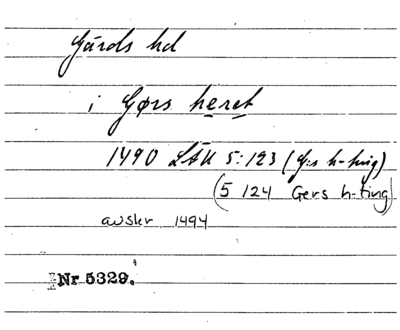 Gärds hd
i Gørs heret
1490 LÄU 5:123 (G:s h-ting)
(5 124 Gers h-ting)
avskr 1494
Nr 5329.